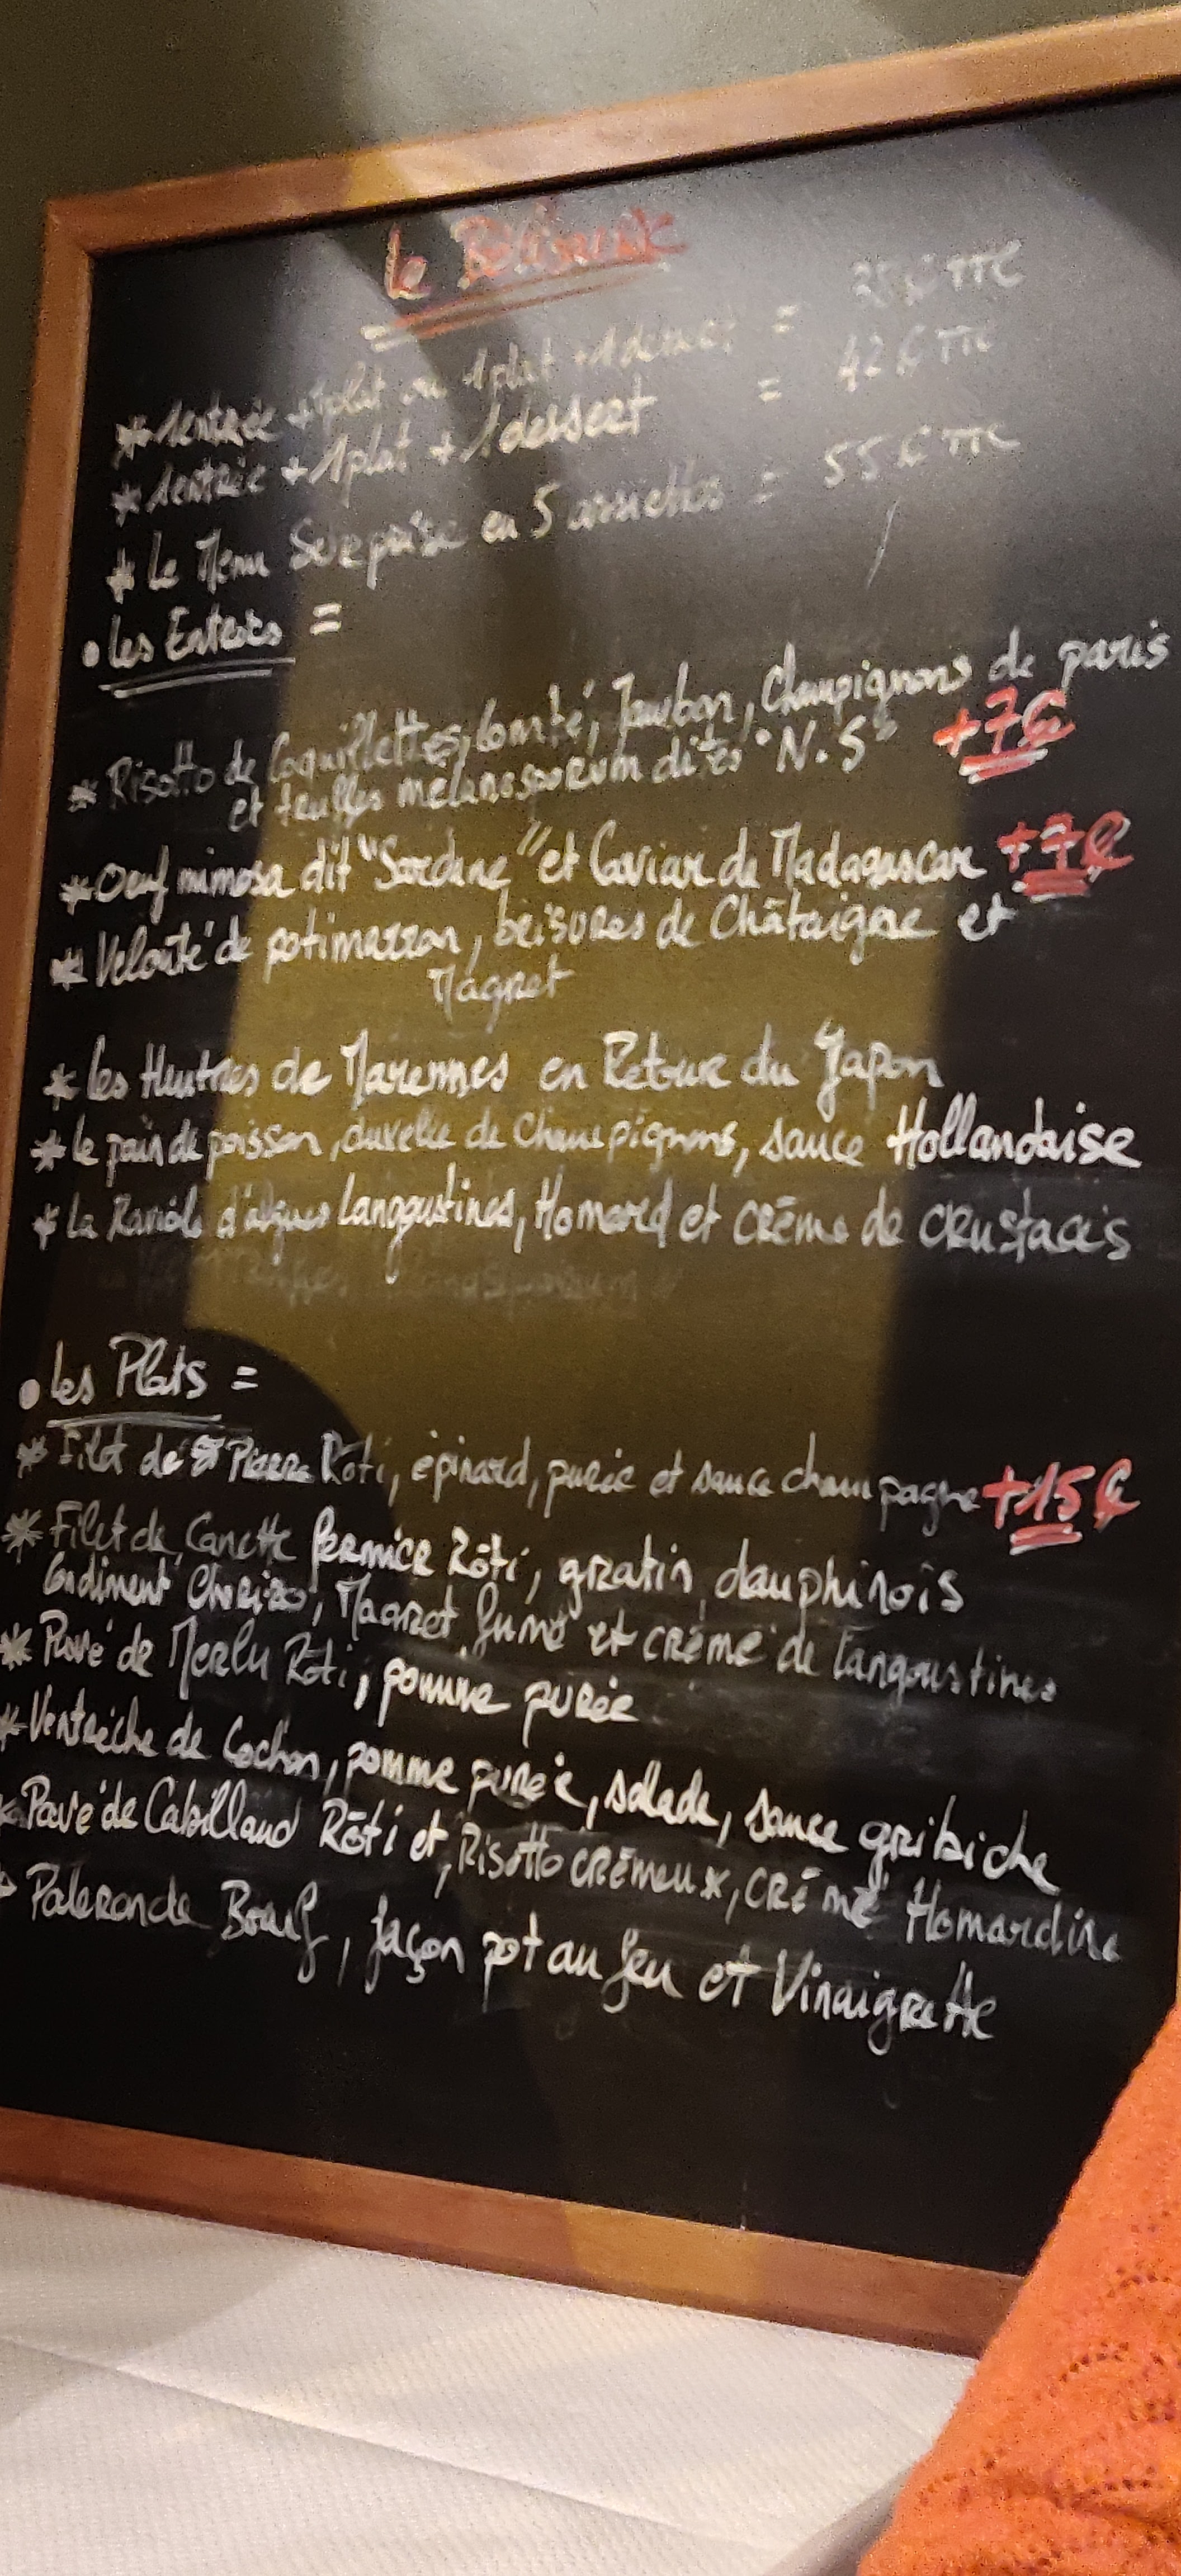 le
* 1 entrée + 1 plat ou 1 plat + 1 dessert =
* 1 entrée + 1 plat + 1 dessert = 42€ TTC
* Le Menu Surprise en 5 assiettes = 55€ TTC
• les Entrées =
* Risotto de Coquillettes, Comté, Jambon, Champignons de paris
et truffes mélanosporum dites "N.S" +7€
* Oeuf mimosa dit "Sardine" et Caviar de Madagascar +7€
* Velouté de potimarron, brisures de Châtaigne et
Magret
* les Huitres de Marennes en Retour du Japon
* le pain de poisson, duxelle de Champignons, sauce Hollandaise
* La Raviole d'algues Langoustines, Homard et crème de crustacés
• les Plats =
* Filet de St Pierre Rôti, épinard, purée et sauce champagne +15€
* Filet de Canette fermière Rôti, gratin dauphinois
Condiment Chorizo, Magret fumé et crème de langoustines
* Pavé de Merlu Rôti, pomme purée
* Ventrèche de Cochon, pomme purée, salade, sauce gribiche
* Pavé de Cabillaud Rôti et Risotto crémeux, crème Homardine
* Paleron de Boeuf, façon pot au feu et Vinaigrette